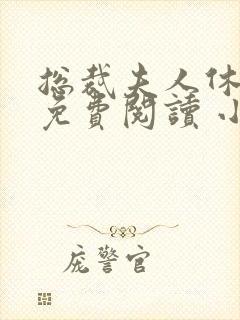 总裁夫人休
免費閱讀 小
庞警官